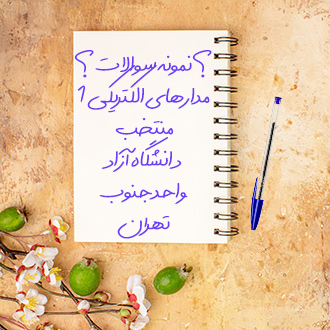 ؟ نمونه سوالات ؟
مدارهای الکتریکی 1
منتخب
دانشگاه آزاد
واحد جنوب
تهران